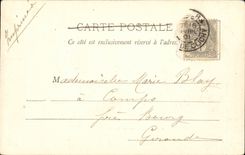 Imprimé
CARTE POSTALE
Ce côté est exclusivement réservé à l'adresse
Mademoiselle Marie Blay
à Comps
près Bourg
Gironde